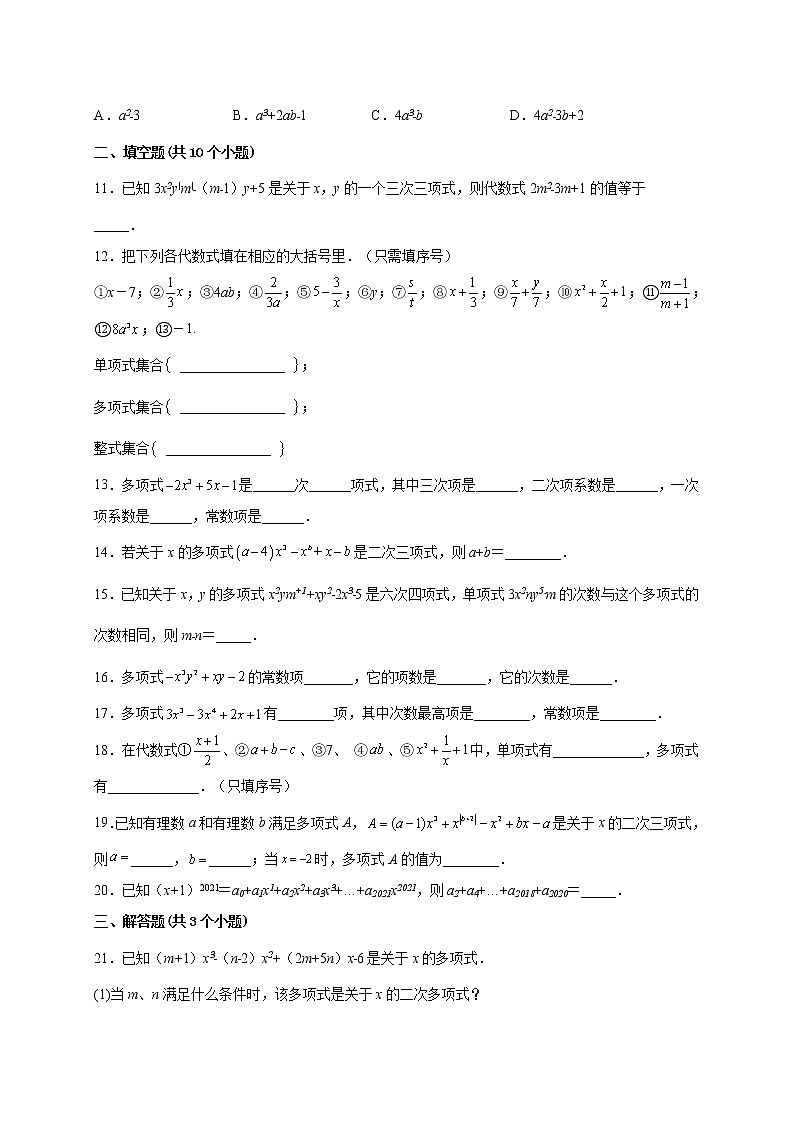 A．a²-3 B．a³+2ab-1 C．4a³-b D．4a²-3b+2
二、填空题(共10个小题)
11．已知3x²y|m|-（m-1）y+5是关于x，y的一个三次三项式，则代数式2m²-3m+1的值等于
_____．
12．把下列各代数式填在相应的大括号里．（只需填序号）
①x－7；②1/3 x；③4ab；④2/3a；⑤5－3/x；⑥y；⑦s/t；⑧x+1/3；⑨x/7+y/7；⑩x²+x/2+1；⑪m－1/m+1；
⑫8a³x；⑬－1.
单项式集合{ _______________ }；
多项式集合{ _______________ }；
整式集合{ _______________ }
13．多项式－2x³+5x－1是______次______项式，其中三次项是______，二次项系数是______，一次
项系数是______，常数项是______．
14．若关于x的多项式(a－4)x³－x^b+x－b是二次三项式，则a+b＝________．
15．已知关于x，y的多项式x²ym+1+xy²-2x³-5是六次四项式，单项式3x²ny5-m的次数与这个多项式的
次数相同，则m-n＝_____．
16．多项式－x³y²+xy－2的常数项_______，它的项数是_______，它的次数是______．
17．多项式3x³－3x⁴+2x+1有________项，其中次数最高项是________，常数项是________．
18．在代数式①x+1/2、②a+b－c、③7、 ④ab、⑤x²+1/x+1中，单项式有_____________，多项式
有_____________．（只填序号）
19.已知有理数a和有理数b满足多项式A，A=(a－1)x³+x^|b+2|－x²+bx－a是关于x的二次三项式，
则a=______，b=______；当x=－2时，多项式A的值为________．
20．已知（x+1）2021＝a0+a1x1+a2x2+a3x3+…+a2021x2021，则a2+a4+…+a2018+a2020＝_____．
三、解答题(共3个小题)
21．已知（m+1）x³-（n-2）x²+（2m+5n）x-6是关于x的多项式．
(1)当m、n满足什么条件时，该多项式是关于x的二次多项式？